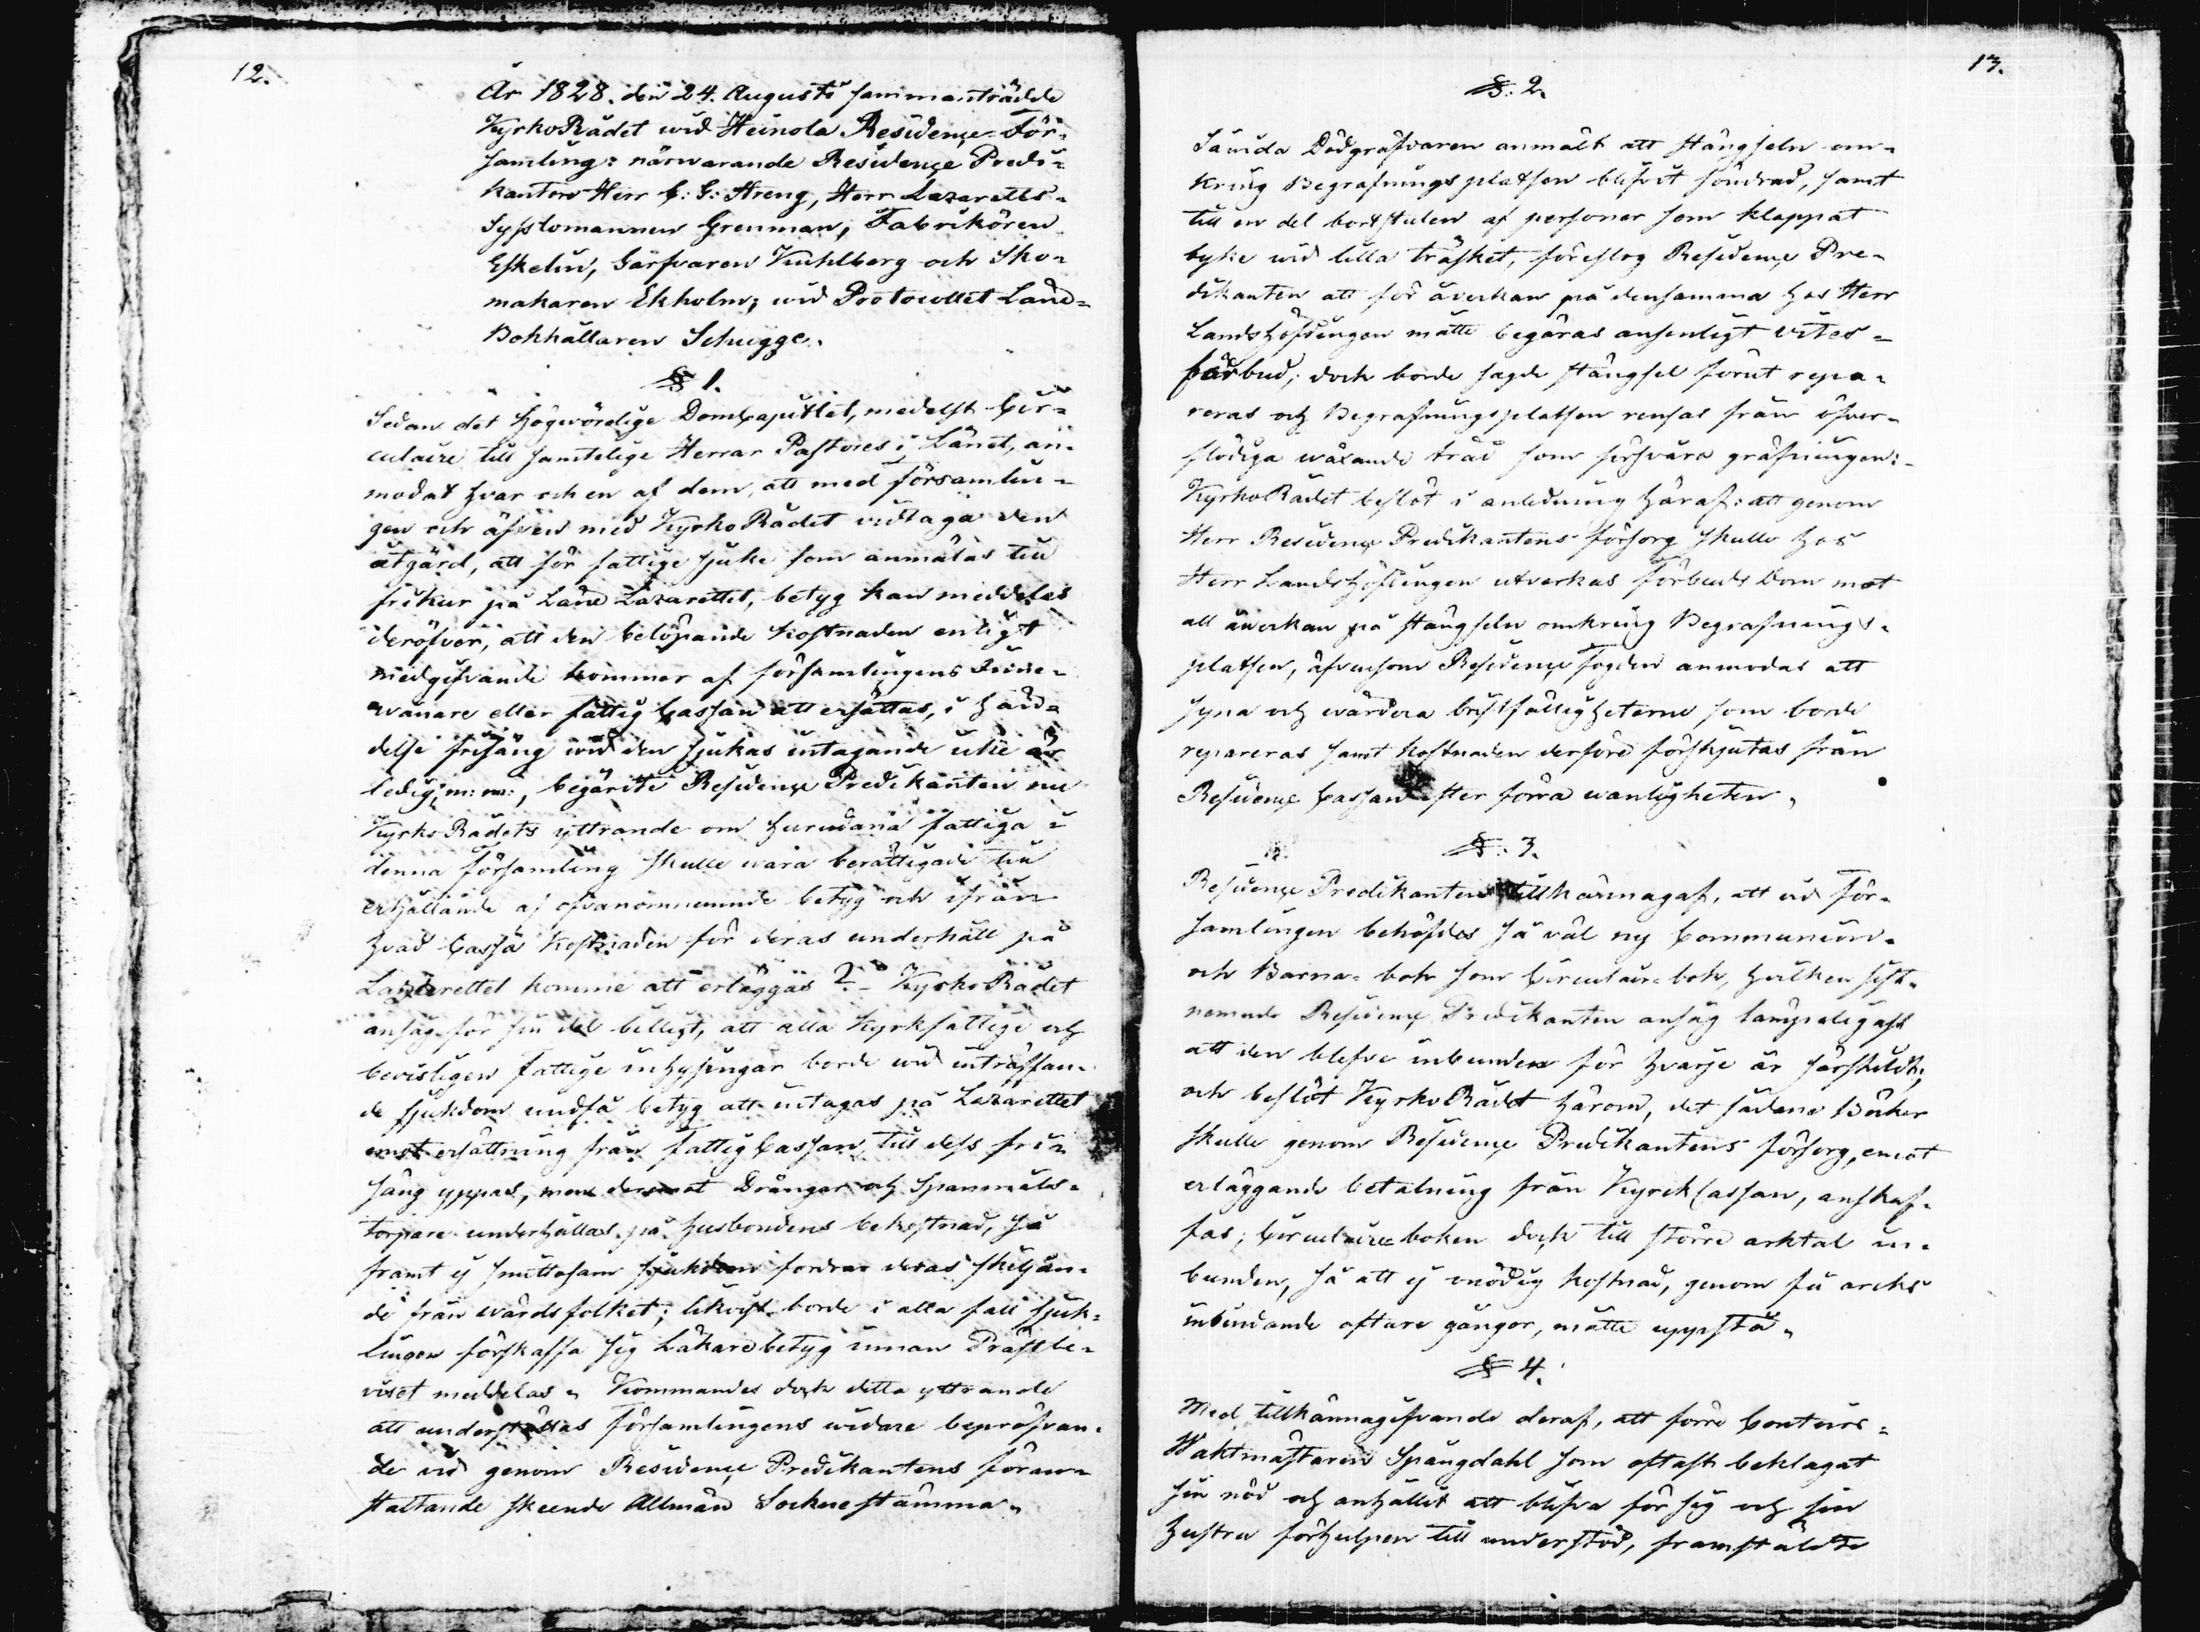 12.
År 1828. den 24. Augusti sammanträdde
KyrkoRådet wid Heinola Residence För=
samling: närwarande Residence Predi=
kanten Herr C: G: Streng, Herr Lazaretts=
Sysslomannen Grenman, Fabrikören
Eskelin, Garfvaren Kuhlberg och Sko=
makaren Ekholm; wid Protocollet Land=
Bokhållaren Schugge.
§ 1.
Sedan det högwördige DomCapitlet, medelst Cir=
culaire till samtelige Herrar Pastores i Länet, an=
modat hvar och en af dem, att med församlin=
gen och äfven med KyrkoRådet vidtaga den
åtgärd, att för fattige sjuke som anmälas till
frikur på Läns Lazarettet, betyg kan meddelas
deröfver, att den belöpande kostnaden enligt
medgifvande kommer af församlingens Inne=
wånare eller fattig Cassan att ersättas, i hän=
delse frisäng wid den sjukas intagande icke är
ledig; m: m:, begärte Residence Predikanten nu
Kyrko Rådets yttrande om hurudana fattiga i
denna Församling skulle wara berättigade till
erhållande af ofvanomnemnde betyg och ifrån
hvad Cassa Kostnaden för deras underhåll på
Lazarettet komme att erläggas? - Kyrko Rådet
ansåg för sin del billigt, att alla Kyrkfattige och
bevisligen fattige inhysingar borde wid inträffan=
de sjukdom undfå betyg att intagas på Lazarettet
emot ersättning från fattig Cassan, till dess fri=
säng yppas, men deremot Drängar och Spanmåls=
torpare underhållas på husbondens bekostnad, så
framt ej smittosam sjukdom fordrar deras skiljan=
de från wårdsfolket; likväl borde i alla fall sjuk=
lingen förskaffa sig Läkarebetyg innan Prästbe=
viset meddelas. Kommandes dock detta yttrande
att underställas Församlingens widare bepröfvan=
de vid genom Residence Predikantens föran=
staltande skeende Allmän Sockne stämma.
13.
§. 2.
Såvida Dödgräfvaren anmält att stängseln om=
kring Begrafnings platsen blifvit söndrad, samt
till en del bortstulen af personer som klappat
byke wid lilla träsket, föreslog Residence Pre=
dikanten att för åverkan på densamma hos Herr
Landshöfdingen måtte begäras ansenligt vites=
förbud; dock borde sagde stängsel förut repa=
reras och Begrafningsplatsen rensas från öfver=
flödiga wäxande träd som försvåra gräfningen:-
KyrkoRådet beslöt i anledning häraf: att genom
Herr Residence Predikantens försorg skulle hos
Herr Landshöfdingen utverkas Förbuds Dom mot
all åverkan på stängseln omkring Begrafnings=
platsen, äfvensom Residence Fogden anmodas att
syna och wärdera bristfälligheterne som borde
repareras samt kostnaden derföre förskjutas från
Residence Cassan efter förra wanligheten.
§. 3.
Residence Predikanten tillkännagaf, att vid För=
samlingen behöfdes så väl ny Communion=
och Barna= bok som Circulaire bok, hvilken sist=
nemnde Residence Predikanten ansåg lämpeligast
att den blefve inbunden för hvarje år särskildt;
och beslöt Kyrko Rådet härom, det sådane Böcker
skulle genom Residence Predikantens försorg, emot
erläggande betalning från KyrckCassan, anskaf=
fas; Circulaire boken dock till större arktal in=
bunden, så att ej onödig kostnad, genom få arcks
inbindande oftare gångor, måtte uppstå.
§ 4.
Med tillkännagifvande deraf, att förre Contoirs=
Waktmästaren Spångdahl som oftast beklagat
sin nöd och anhållit att blifva för sig och sin
hustru förhulpen till understöd, framstälde